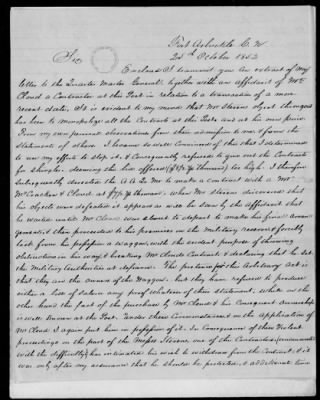 Fort Arbuckle C. N.
25th October 1852
Sir
Enclosed I transmit you An extract of my
letter to the Quarter Master General, together with an affidavit of Mr
Cloud a Contractor at this Post in relation to a transaction of a more
recent date, It is evident to my mind that Mr Stevens object throughout
has been to monopolize all the Contracts at this Post and at his own price
From my own personal observations from their admission to me & from the
statements of others I became so well Convinced of this that I determined
to use my efforts to stop it, & Consequently refused to give out the Contract
for Shingles, deeming the bid offered too high. I therefore
Subsequently directed the A. A. Qr. Mr. to make a contract with a Mr
McCarter & Cloud at per thousand, when Mr Stevens discovered that
his objects were defeated it appears as will be seen by the affidavit that
he waited until Mr Cloud was about to depart to make his final arran-
gements, & then proceeded to his premises on the Military reserve & forcibly
took from his possession a waggon, with the evident purpose of throwing
obstructions in his way, & breaking Mr Clouds Contract, & declaring that he set
the Military Authorities at defiance. The pretence for this Arbitrary Act is
that they are the owners of the Waggon but they have refused to produce
either a bill of sale or any corroboration of their statement, while on the
other hand the fact of the purchase by Mr Cloud & his Consequent ownership
is well known at the Post. Under these Circumstances on the application of
Mr Cloud I again put him in possession of it. In Consequence of these violent
proceedings on the part of the Messrs Stevens one of the Contractors
with the difficulty has intimated his wish to withdraw from the Contract, & it
was only after my assurance that he should be protected, & additional time